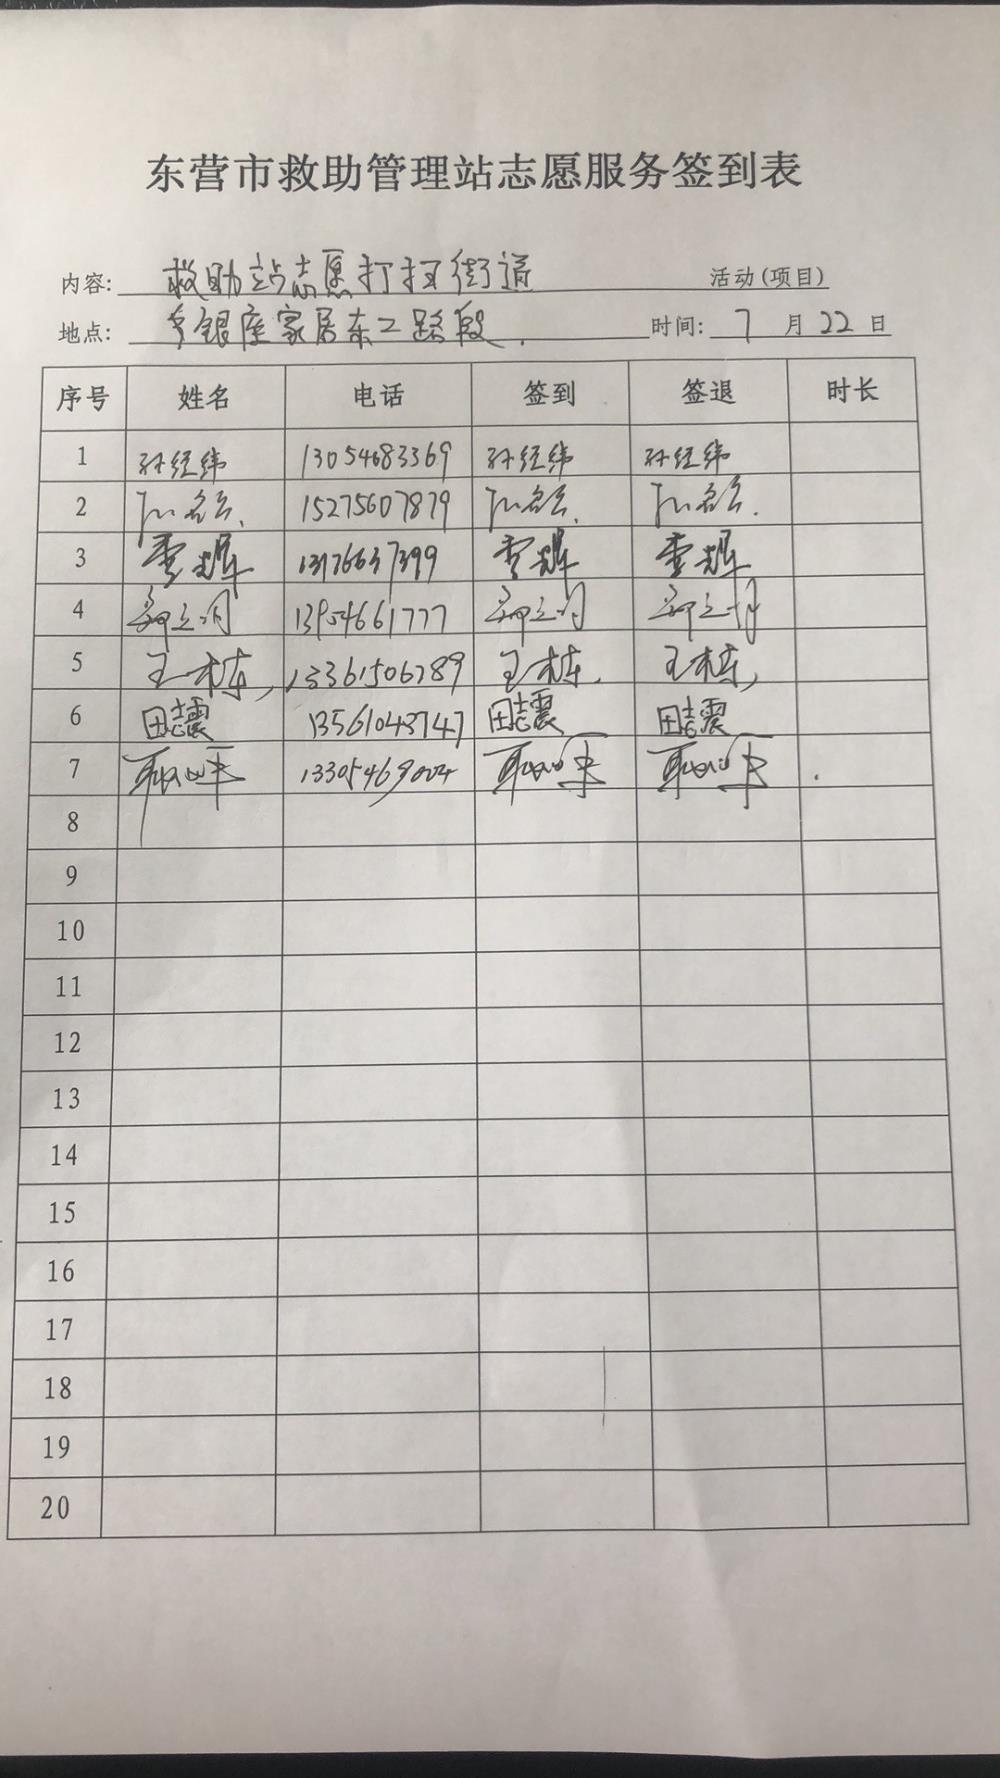 东营市救助管理站志愿服务签到表
内容: 救助站志愿打扫街道 活动(项目)
地点: 银座家居东二路段. 时间: 7 月 22 日
序号 姓名 电话 签到 签退 时长
1 孙经纬 13054683369 孙经纬 孙经纬
2 15275607879
3 李辉 13176637399 李辉 李辉
4 13954661777
5 王栋, 13361506789 王栋. 王栋,
6 田志震 13561043747 田志震 田志震
7 13305469004
8
9
10
11
12
13
14
15
16
17
18
19
20